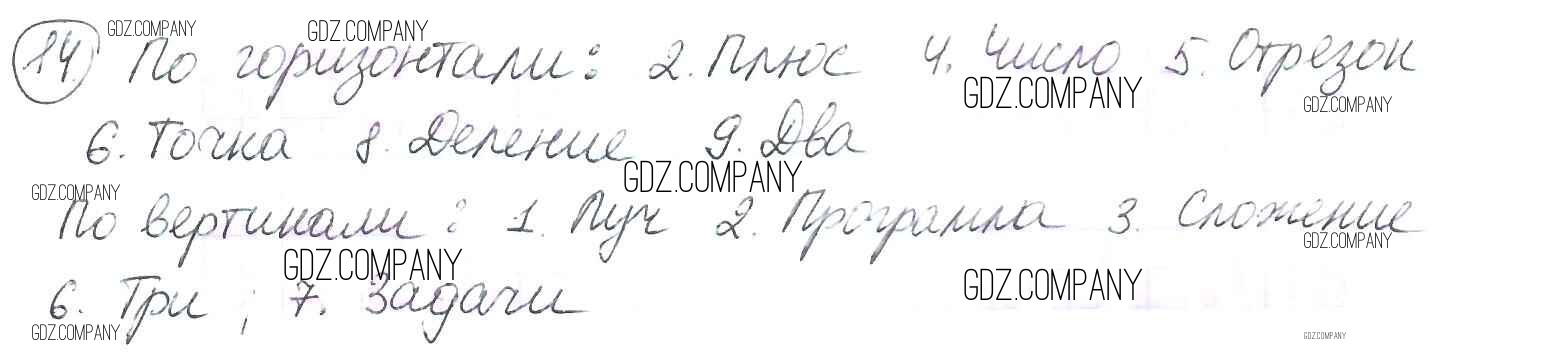 14 По горизонтали: 2. Плюс 4. Число 5. Отрезок
6. Точка 8. Деление 9. Два
По вертикали: 1. Луч 2. Программа 3. Сложение
6. Три ; 7. Задачи
GDZ.COMPANY
GDZ.COMPANY
GDZ.COMPANY
GDZ.COMPANY
GDZ.COMPANY
GDZ.COMPANY
GDZ.COMPANY
GDZ.COMPANY
GDZ.COMPANY
GDZ.COMPANY
GDZ.COMPANY